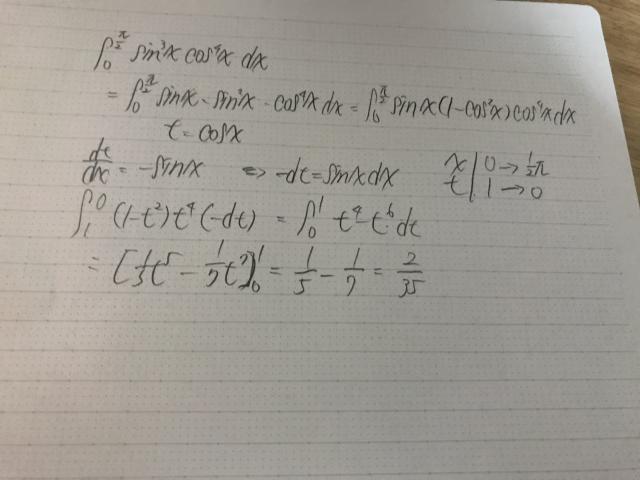 ∫₀^{π/2} sin³x cos⁴x dx
= ∫₀^{π/2} sinx · sin²x · cos⁴x dx = ∫₀^{π/2} sinx(1-cos²x)cos⁴x dx
t = cosx
dt/dx = -sinx ⇔ -dt = sinxdx
x | 0 → ½π
t | 1 → 0
∫₁⁰ (1-t²)t⁴(-dt) = ∫₀¹ t⁴-t⁶ dt
= [1/5 t⁵ - 1/7 t⁷]₀¹ = 1/5 - 1/7 = 2/35